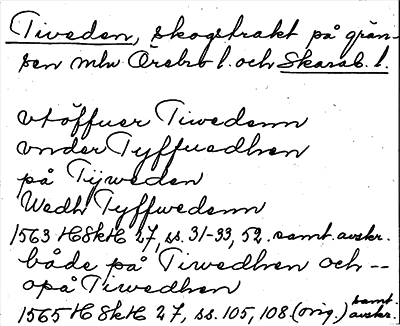 Tiveden, skogstrakt på grän-
sen mln Örebro l. och Skarab. l.
vtöffuer Tiwedenn
vnder Tyffuedhen
på Tijweden
Wedh Tyffwedenn
1563 HSkH 27, ss. 31-33, 52. samt. avskr.
både på Tiwedhen och --
opå Tiwedhen
1565 HSkH 27, ss. 105, 108. (orig.) samt. avskr.